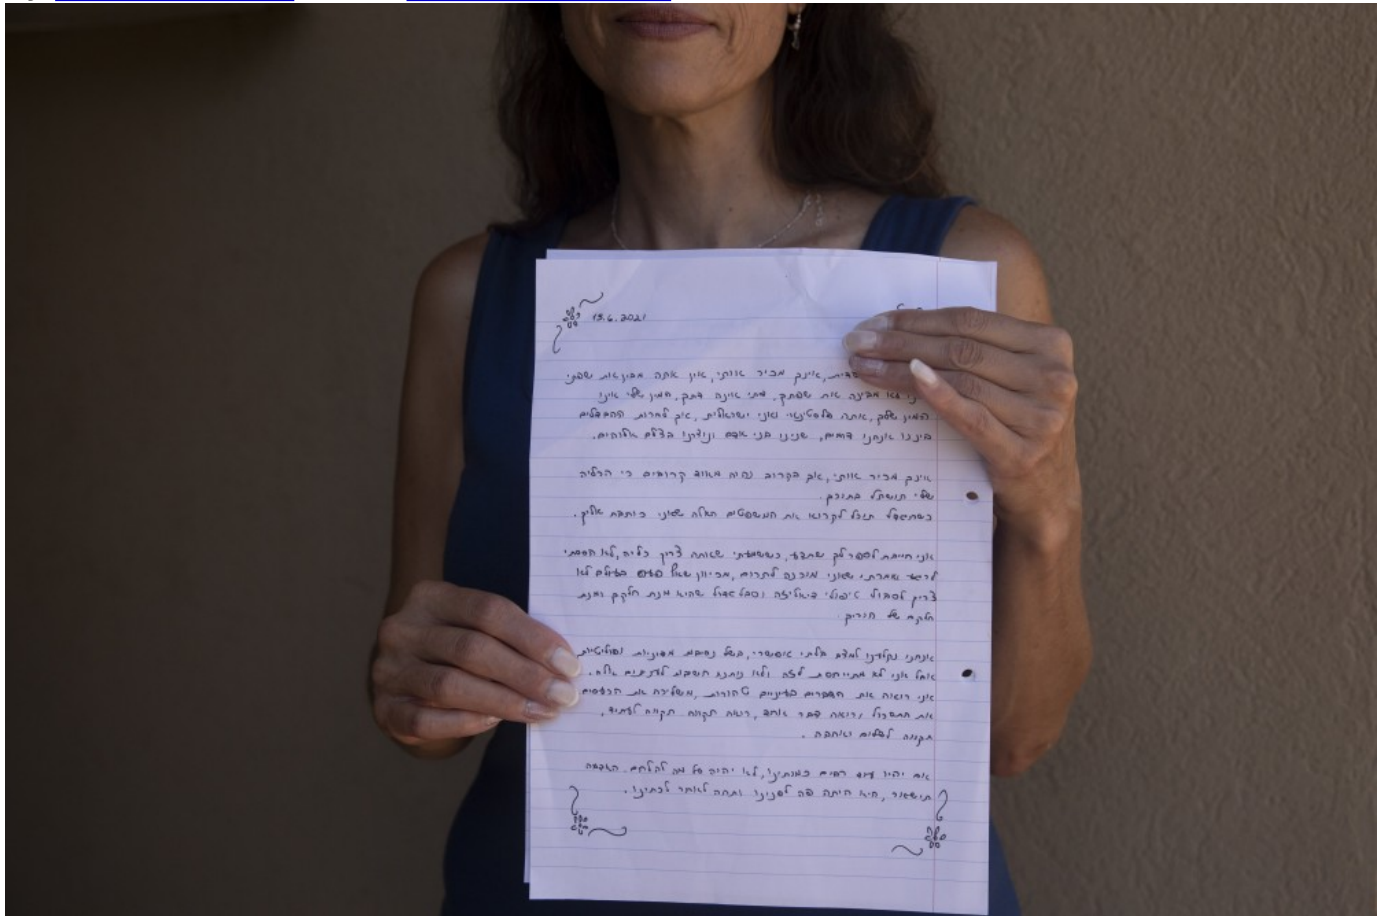 15.6.2021
אינך מכיר אותי, אין אתה מבין את שפתי
לא מבינה את שפתך, דתי אינה דתך, המין שלי אינו
המין שלך, אתה פלסטינאי ואני ישראלית, אך למרות ההבדלים
ביננו אנחנו דומים, שנינו בני אדם ונוצרנו בצלם אלוהים.
אינך מכיר אותי, אך בקרוב נהיה מאוד קרובים כי הכליה
שלי תושתל בתוכך.
כשתגדל תוכל לקרוא את המשפטים האלה שאני כותבת אליך.
אני חייבת לספר לך שתדע, כששמעתי שאתה צריך כליה, לא הססתי
לרגע ואמרתי שאני מוכנה לתרום, מכיוון שאף פעוט בעולם לא
צריך לסבול טיפולי דיאליזה וסבל גדול שהיא מנת חלקך ומנת
חלקם של הוריך.
אנחנו נקלענו למצב בלתי אפשרי, בשל נסיבות פוליטיות
אבל אני לא מתייחסת לזה ולא נותנת חשיבות לעניינים אלה.
אני רואה את הדברים בעיניים טהורות, משליכה את הכעסים
את התסכול ורואה דבר אחד, רואה תקווה תקווה לעתיד,
תקווה לשלום ואהבה.
אם יהיו עוד רבים כמותינו, לא יהיה על מה להלחם. האדמה
תישאר, היא היתה פה לפנינו ותהה לאחר לכתינו.